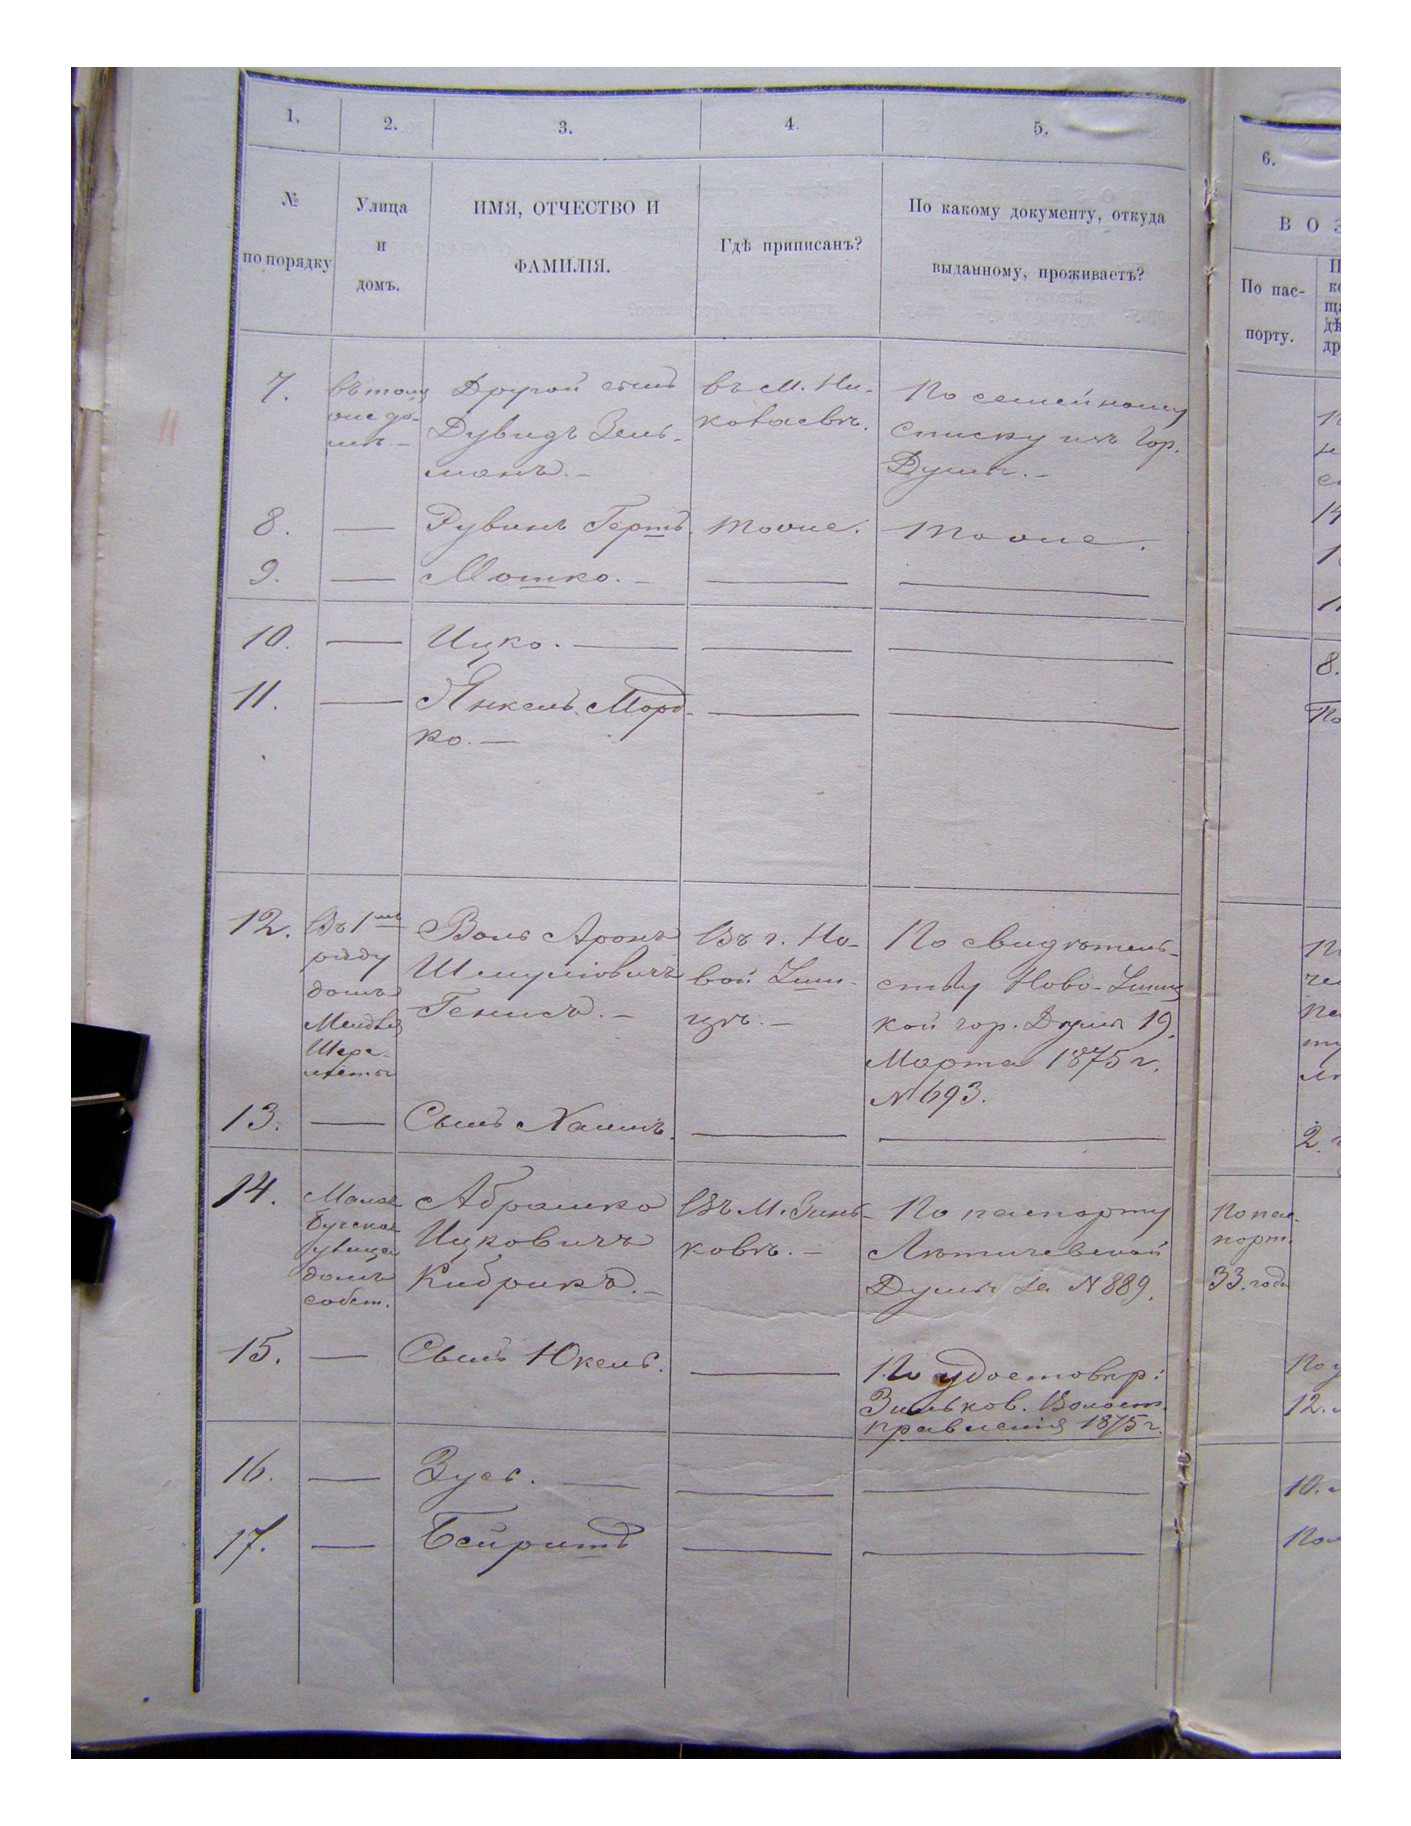 1. 2. 3. 4. 5. 6.
№ по порядку
Улица и домъ.
ИМЯ, ОТЧЕСТВО И
ФАМИЛІЯ.
Гдѣ приписанъ?
По какому документу, откуда
выданному, проживаетъ?
В О З
По пас-
порту.
7.
въ томъ
же до-
мѣ. —
Другой сынъ
Дувидъ Зель-
манъ. —
въ м. Ни-
колаевкѣ.
По семейному
списку изъ Гор.
Думы. —
8. —
Рувинъ Гершъ.
тоже.
тоже.
9. —
Мошко. —
10. —
Ицко. —
11. —
Янкель Морд-
ко. —
12.
Въ 1мъ
ряду
домъ
Менделя
Шере-
меты
Воль Аронъ
Шмуліовичъ
Генисъ. —
Въ г. Но-
вой Уши-
цѣ. —
По свидѣтель-
ству Ново-Ушиц
кой гор. Думы 19
Марта 1875 г.
№ 693.
13. —
Сынъ Хаимъ.
14.
Малая
Бугская
улица
домъ
собст.
Абрашко
Ицковичъ
Кибрикъ. —
Въ м. Зинь-
ковѣ. —
По паспорту
Летичевской
Думы за № 889.
По пас-
порт.
33. года
15. —
Сынъ Юкель.
По удостовѣр:
Зиньков. Волост.
правленія 1875 г.
12.
16. —
Зусь. —
10.
17. —
Бейришъ
8.
2.